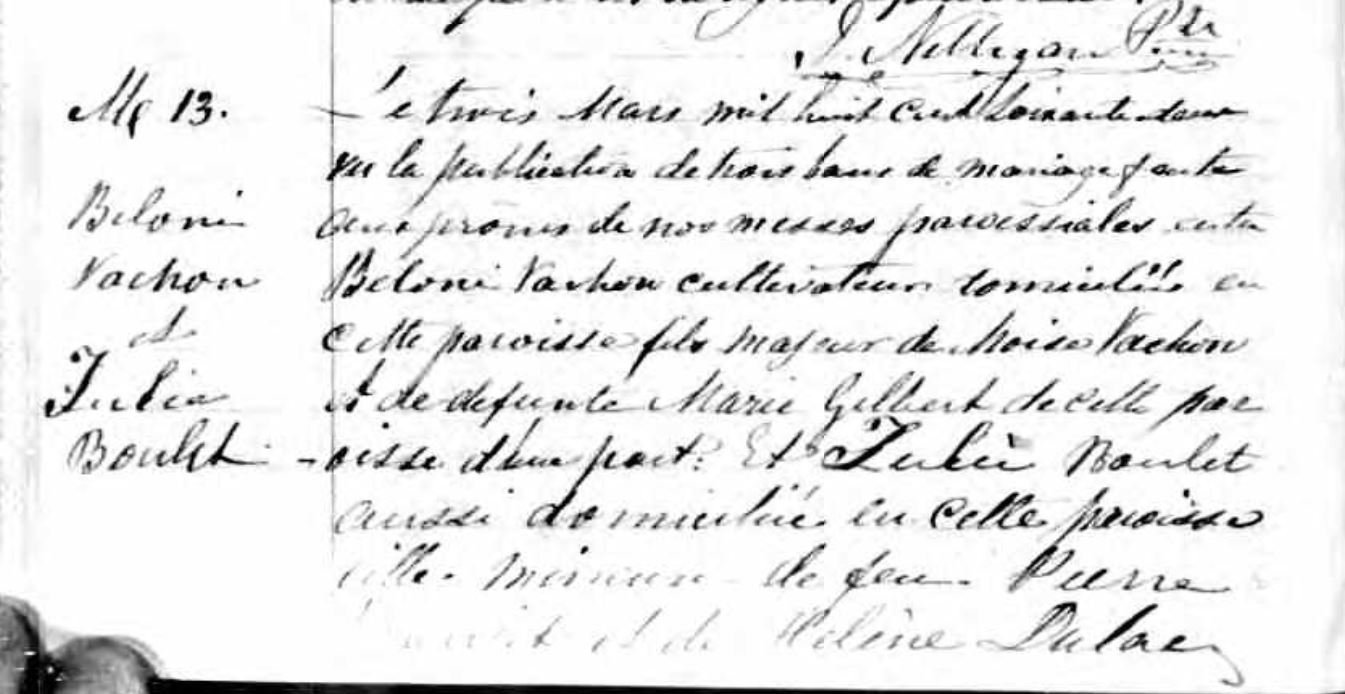 J. Nelligan Ptr
M 13.
Beloni
Vachon
et
Julie
Boulet
Le trois Mars mil huit cent soixante deux
vu la publication de trois bans de mariage faite
aux prônes de nos messes paroissiales entre
Beloni Vachon cultivateur domicilié en
cette paroisse fils majeur de Moise Vachon
et de defunte Marie Gilbert de cette par
-oisse d'une part. Et Julie Boulet
aussi domiciliée en cette paroisse
fille mineure de feu Pierre
et de Helène Dulac